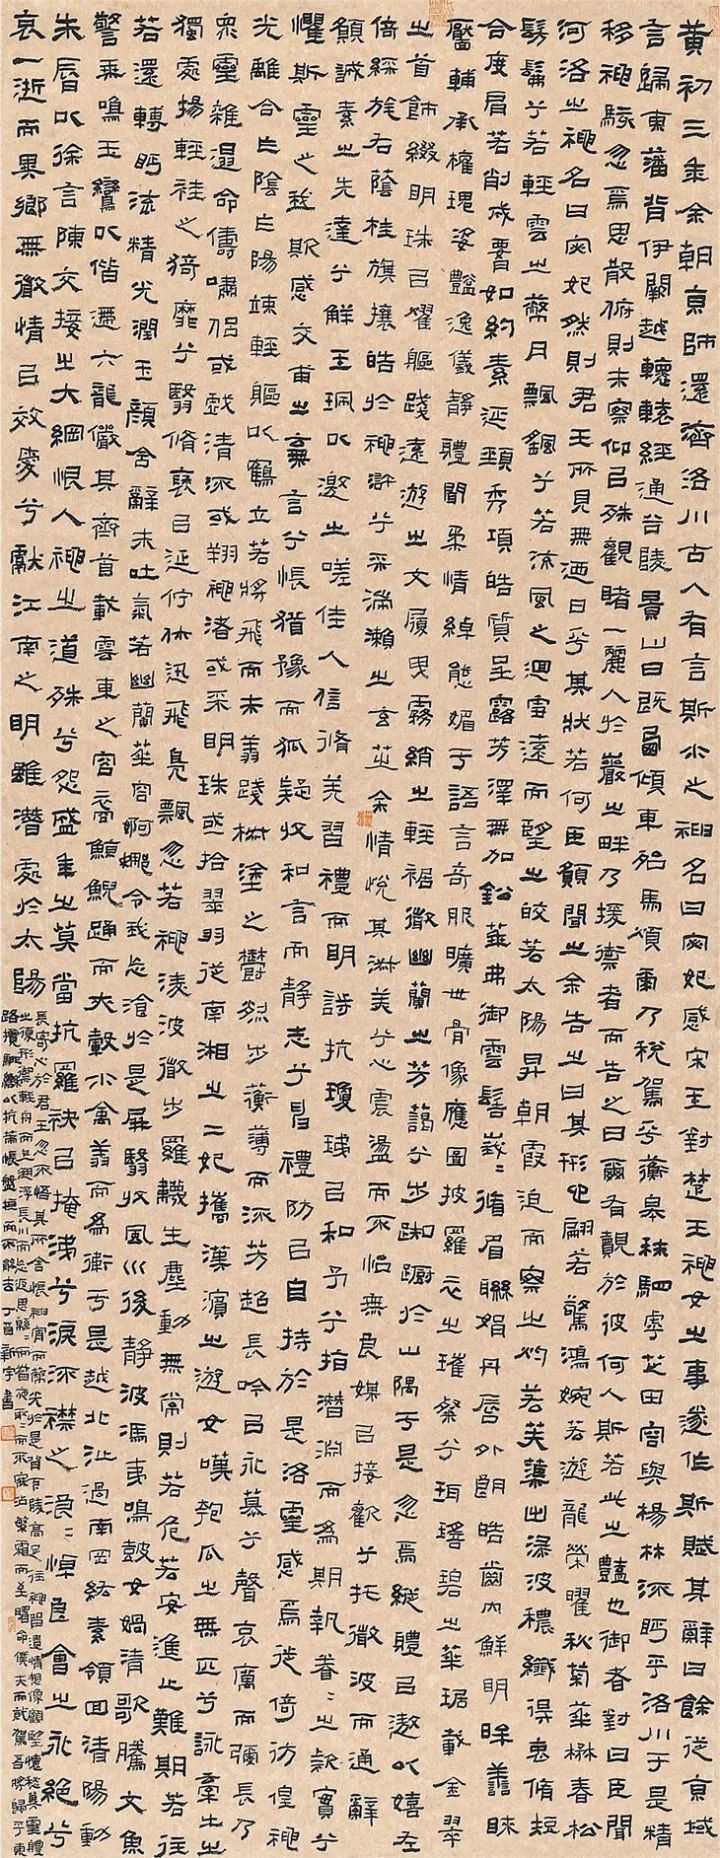 黄初三年余朝京師還濟洛川古人有言斯水之神名曰宓妃感宋玉對楚王神女之事遂作斯賦其辭曰餘從京域
言歸東藩背伊闕越轘轅經通谷陵景山日既西傾車殆馬煩爾乃稅駕乎蘅皋秣駟乎芝田容與楊林流眄乎洛川于是精
移神駭忽焉思散俯則未察仰以殊觀睹一麗人於巖之畔乃援禦者而告之曰爾有覿於彼何人斯若此之豔也御者對曰臣聞
河洛之神名曰宓妃然則君王所見無迺日乎其狀若何臣願聞之余告之曰其形也翩若驚鴻婉若遊龍榮曜秋菊華楙春松
髣髴兮若輕雲之蔽月飄颻兮若流風之迴雪遠而望之皎若太陽昇朝霞迫而察之灼若芙蕖出淥波穠纖得衷脩短
合度肩若削成腰如約素延頸秀項皓質呈露芳澤無加鉛華弗御雲髻峩〻脩眉聯娟丹脣外朗皓齒內鮮明眸善睞
靨輔承權瑰姿豔逸儀靜體閑柔情綽態媚于語言奇服曠世骨像應圖披羅衣之璀粲兮珥瑤碧之華琚戴金翠
之首飾綴明珠以耀軀踐遠遊之文履曳霧綃之輕裾微幽蘭之芳藹兮步踟躕於山隅于是忽焉縱體以遨以嬉左
倚綵旄右蔭桂旗攘皓於神滸兮采湍瀨之玄芝余情悅其淑美兮心震盪而不怡無良媒以接歡兮托微波而通辭
願誠素之先達兮解玉珮以邀之嗟佳人信脩羌習禮而明詩抗瓊珶以和予兮指潛淵而為期執眷〻之款實兮
懼斯靈之我欺感交甫之棄言兮悵猶豫而狐疑收和言而靜志兮申禮防以自持於是洛靈感焉徙倚彷徨神
光離合乍陰乍陽竦輕軀以鶴立若將飛而未翥踐椒塗之鬱烈步蘅薄而流芳超長吟以永慕兮聲哀厲而彌長乃
眾靈雜遝命儔嘯侶或戲清流或翔神渚或采明珠或拾翠羽從南湘之二妃攜漢濱之遊女嘆匏瓜之無匹兮詠牽牛之
獨處揚輕袿之猗靡兮翳脩袖以延佇休迅飛鳧飄忽若神淩波微步羅襪生塵動無常則若危若安進止難期若往
若還轉眄流精光潤玉顏含辭未吐氣若幽蘭華容婀娜令我忘飡於是屏翳收風川後靜波馮夷鳴鼓女媧清歌騰文魚
警乘鳴玉鸞以偕逝六龍儼其齊首載雲車之容裔鯨鯢踴而夾轂水禽翔而為衛于是越北沚過南岡紆素領回清陽動
朱脣以徐言陳交接之大綱恨人神之道殊兮怨盛年之莫當抗羅袂以掩涕兮淚流襟之浪〻悼良會之永絕兮
哀一逝而異鄉無微情以效愛兮獻江南之明雖潛處於太陽
長寄心於君王忽不悟其所舍悵神宵而蔽光於是背下陵高足往神留遺情想像顧望懷愁冀靈體
之復形禦輕舟而上溯浮長川而忘返思綿〻而增慕夜耿〻而不寐沾繁霜而至曙命僕夫而就駕吾將歸乎東
路攬騑轡以抗策悵盤桓而不能去丁酉新宇書